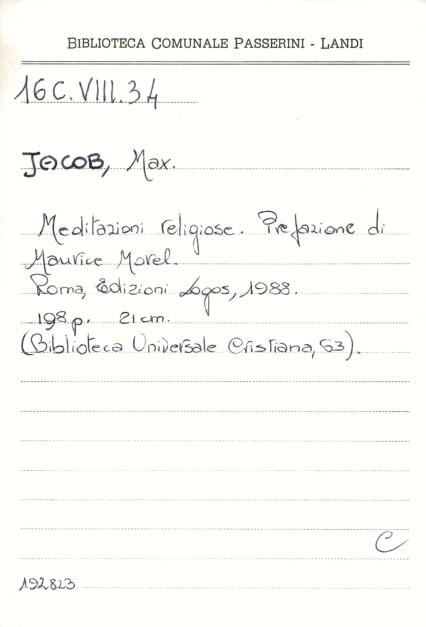 BIBLIOTECA COMUNALE PASSERINI - LANDI
16C.VIII.34
JACOB, Max.
Meditazioni religiose. Prefazione di
Maurice Morel.
Roma, Edizioni Logos, 1988.
198 p. 21 cm.
(Biblioteca Universale Cristiana, 63).
C
192823